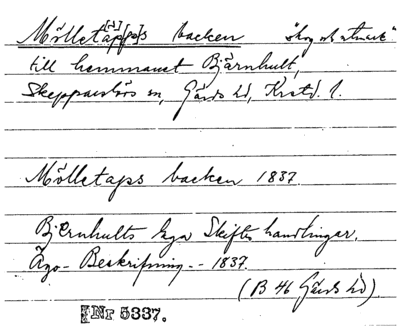 Mölletap[p]s backen "skog och utmark"
till hemmanet Bjärnhult,
Skepparslövs sn, Gärds hd, Krstd. l.
Mölletaps backen 1837.
Bjernhults laga Skiftes handlingar.
Ägo-Beskrifning - 1837.
(B 46 Gärds hd)
Nr 5337.